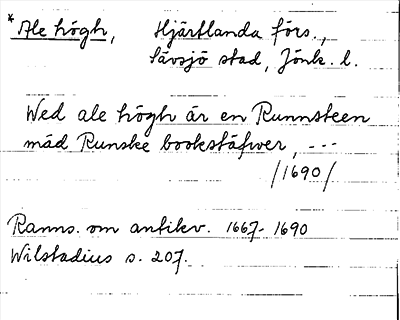 * Ale högh, Hjärtlanda förs.,
Sävsjö stad, Jönk. l.
Wed ale högh är en Runnsteen
mäd Runske bookstäfwer, ---
/1690/
Ranns. om antikv. 1667-1690
Wilstadius s. 207.